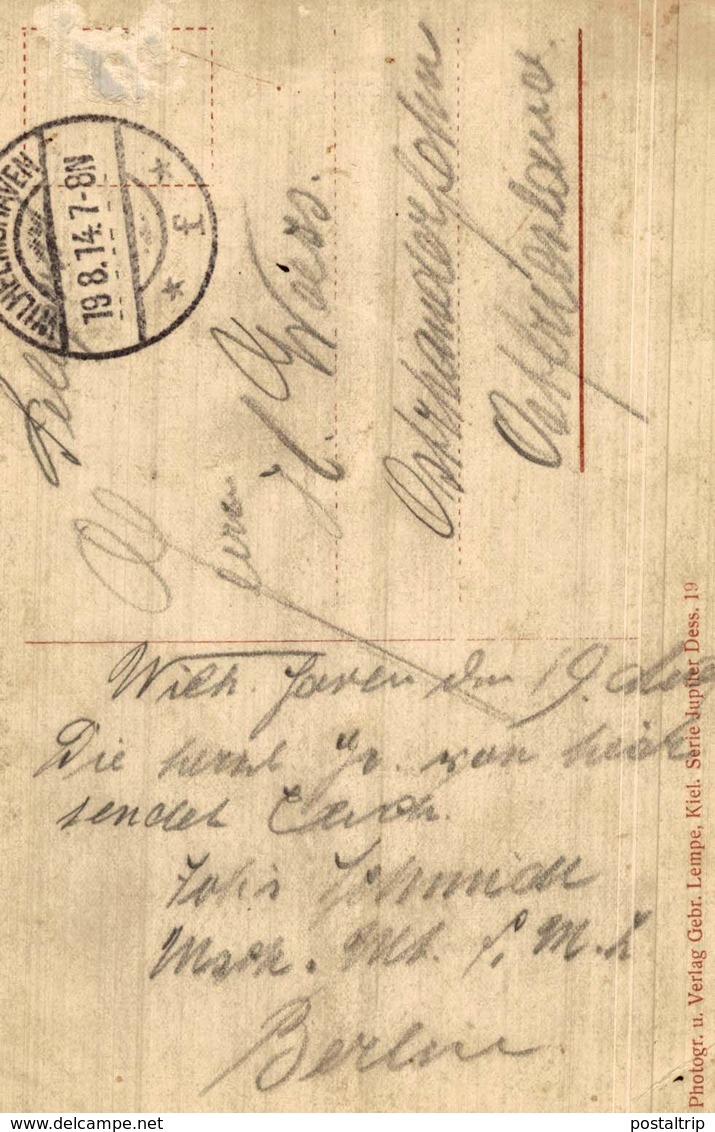 WILHELMSHAVEN
19 8.14.7-8N
* f *
Herrn
H. Weers.
Ostrhauderfehn
Ostfriesland.
Wilh. haven den 19.
Die herzl Gr. von hier
sendet Euch
Johs Schmidt
Msch. Mt. S. M. S
Berlin
Photogr. u. Verlag Gebr. Lempe, Kiel. Serie Jupiter Dess. 19
delcampe.net
postaltrip